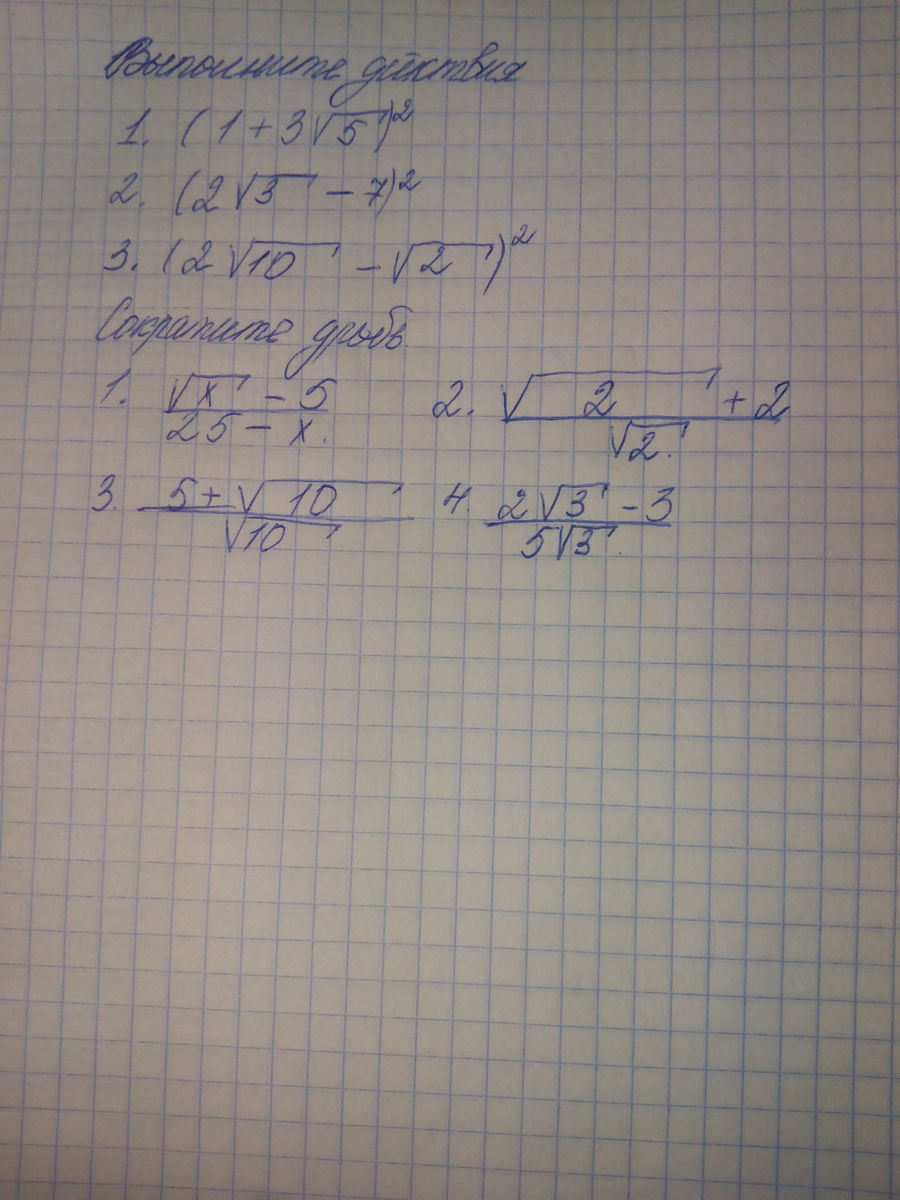 Выполните действия
1. (1 + 3√5)²
2. (2√3 − 7)²
3. (2√10 − √2)²
Сократите дробь
1. (√x − 5)/(25 − x) 2. (√2 + 2)/√2
3. (5 + √10)/√10 4. (2√3 − 3)/(5√3)